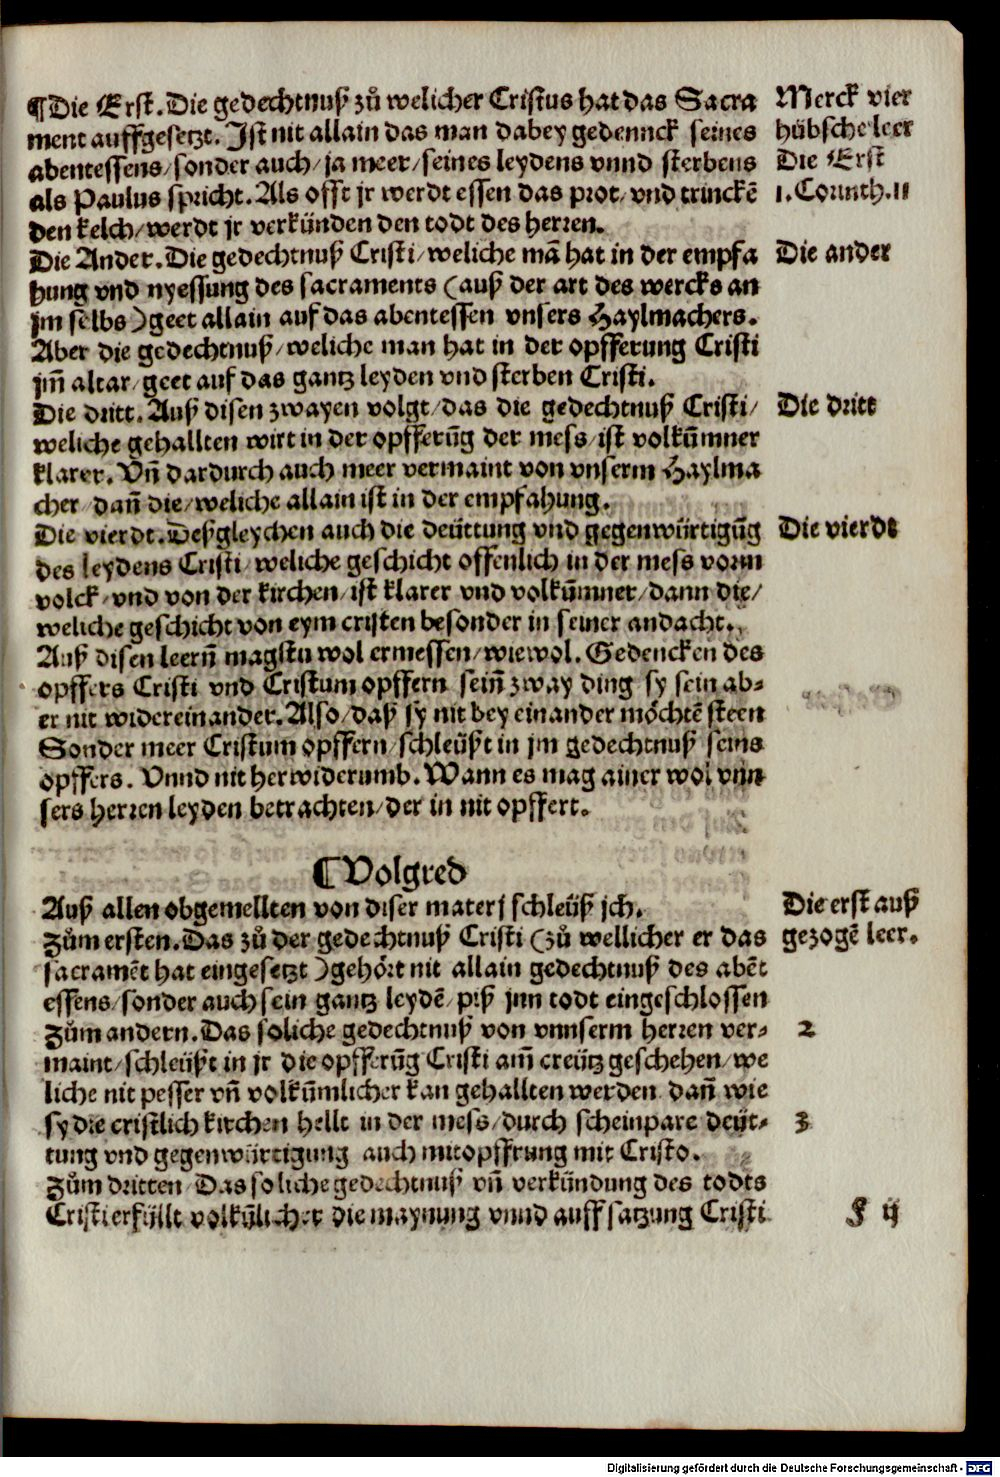 ¶Die Erst. Die gedechtnuß zů welicher Cristus hat das Sacra
ment auffgesetzt. Ist nit allain das man dabey gedennck seines
abentessens/sonder auch/ja meer/seines leydens vnnd sterbens
als Paulus spricht. Als offt jr werdt essen das prot/vnd trinckē
den kelch/werdt jr verkünden den todt des herren.
Die Ander. Die gedechtnuß Cristi/weliche mā hat in der empfa
hung vnd nyessung des sacraments (auß der art des wercks an
jm selbs) geet allain auf das abentessen vnsers Haylmachers.
Aber die gedechtnuß/weliche man hat in der opfferung Cristi
jm̄ altar/geet auf das gantz leyden vnd sterben Cristi.
Die dritt. Auß disen zwayen volgt/das die gedechtnuß Cristi/
weliche gehallten wirt in der opfferūg der mess/ist volkūmner
klarer. Vn̄ dardurch auch meer vermaint von vnserm Haylma
cher/dan̄ die/weliche allain ist in der empfahung.
Die vierdt. Deßgleychen auch die deüttung vnd gegenwürtigūg
des leydens Cristi/weliche geschicht offenlich in der mess vorm
volck/vnd von der kirchen/ist klarer vnd volkūmner/dann die/
weliche geschicht von eym cristen besonder in seiner andacht.
Auß disen leern̄ magstu wol ermessen/wiewol. Gedencken des
opffers Cristi vnd Cristum opffern sein̄ zway ding sy sein ab-
er nit widereinander. Also/daß sy nit bey einander möchtē steen
Sonder meer Cristum opffern/schleüßt in jm gedechtnuß seins
opffers. Vnnd nit herwiderumb. Wann es mag ainer wol vnn-
sers herren leyden betrachten/der in nit opffert.
¶Volgred
Auß allen obgemellten von diser materj schleüß jch.
Zům ersten. Das zů der gedechtnuß Cristi (zů wellicher er das
sacramēt hat eingesetzt) gehört nit allain gedechtnuß des abēt
essens/sonder auch sein gantz leydē/piß jnn todt eingeschlossen
Zům andern. Das soliche gedechtnuß von vnnserm herren ver-
maint/schleüßt in jr die opfferūg Cristi am̄ creütz geschehen/we
liche nit pesser vn̄ volkūmlicher kan gehallten werden dan̄ wie
sy die cristlich kirchen hellt in der mess/durch scheinpare deüt-
tung vnd gegenwürtigung auch mitopffrung mit Cristo.
Zům dritten Das soliche gedechtnuß vn̄ verkündung des todts
Cristi erfüllt volkūlicher die maynung vnnd auffsatzung Cristi
Merck vier
hübsche leer
Die Erst
1. Corinth. 11
Die ander
Die dritt
Die vierdt
Die erst auß
gezogē leer.
2
3
F ij
Digitalisierung gefördert durch die Deutsche Forschungsgemeinschaft - DFG